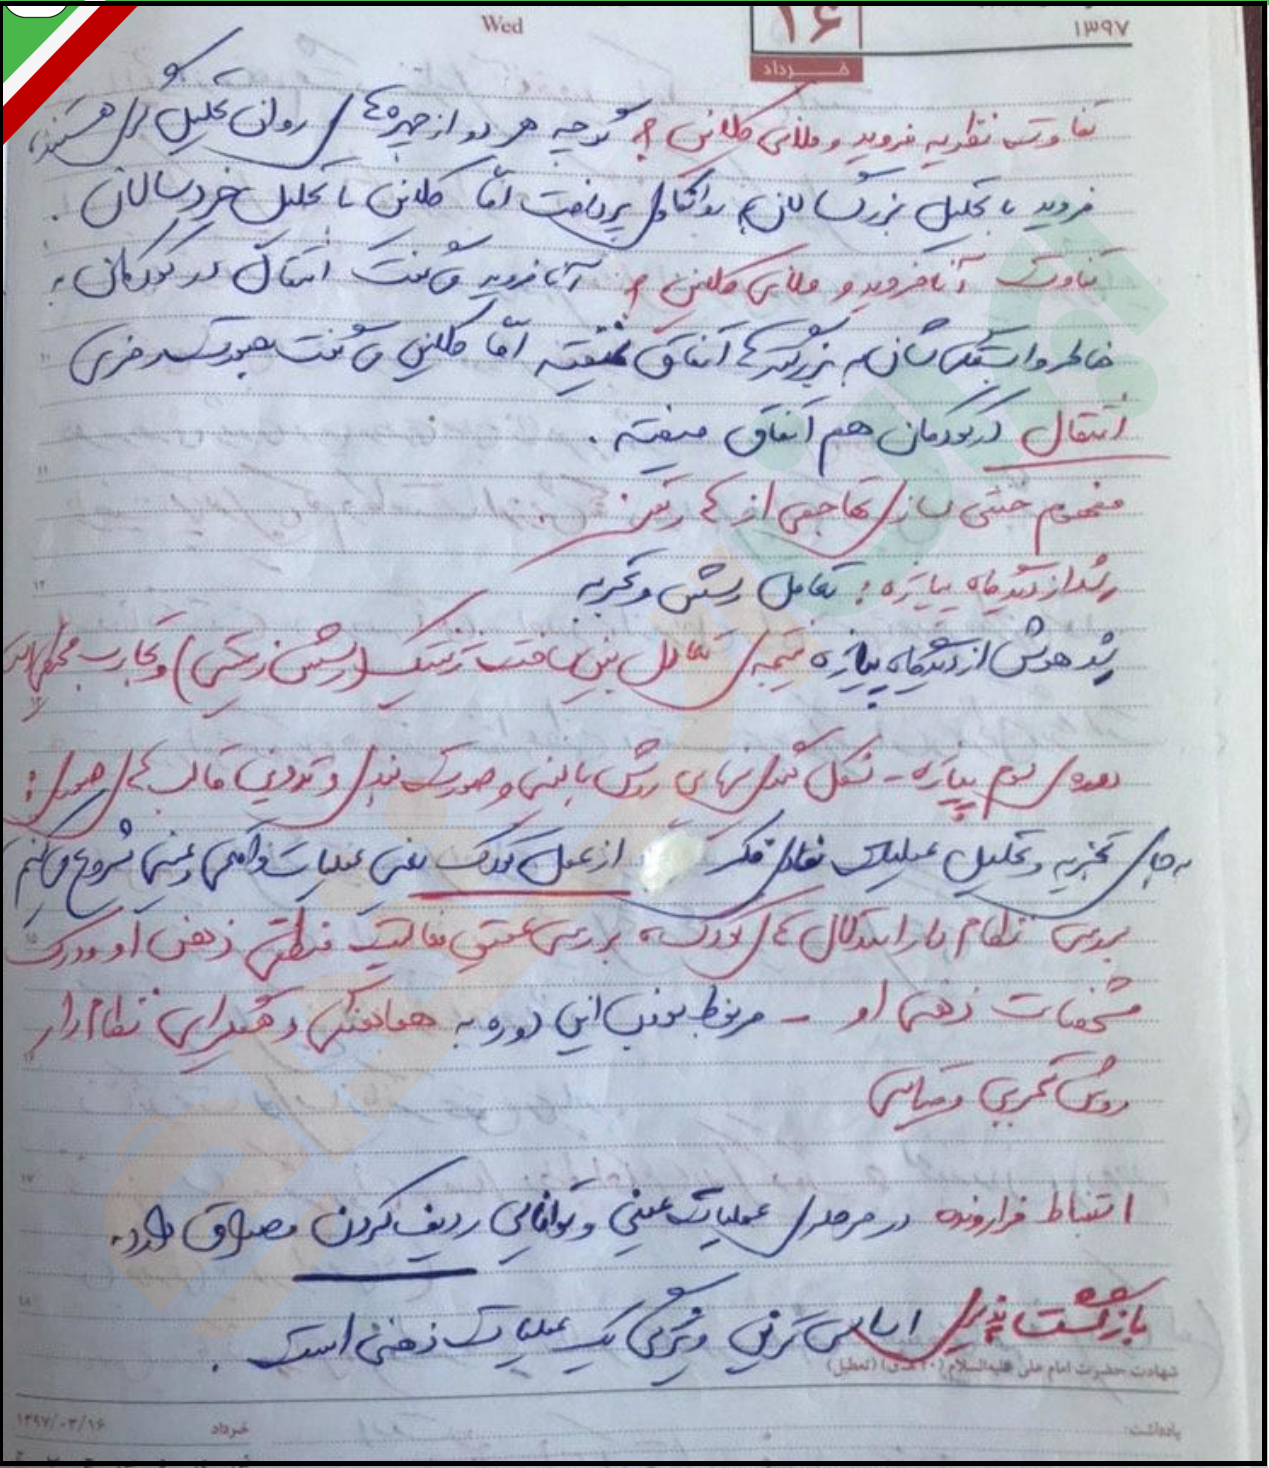 Wed
۱۶
۱۳۹۷
خرداد
تفاوت نظریه فروید و ملانی کلاین؟ گرچه هر دو از چهره های روان تحلیل گری هستند،
فروید با تحلیل بزرگسالان به کودکی پرداخت اما کلاین با تحلیل خردسالان.
تفاوت آنا فروید و ملانی کلاین؟ آنا فروید می گفت انتقال در کودکان به
خاطر وابستگی شان به بزرگترها اتفاق نمیفته اما کلاین می گفت بصورت رمزی
انتقال در کودکان هم اتفاق میفته.
مفهوم خنثی سازی تهاجمی از
رشد از دیدگاه پیاژه: تعامل رسش و تجربه
رشد هوش از دیدگاه پیاژه نتیجه ی تعامل بین بافت ژنتیک (رسش زیستی) و تجارب محیطی است
دوره ی سوم پیاژه - شکل گیری نهایی روش بالینی و صورت بندی و تدوین قالب های اصولی:
به جای تجزیه و تحلیل عملیات تفکر از عمل کودک یعنی عملیات واقعی و عینی شروع می کنیم
بررسی نظام دار استدلال های کودک، بررسی عمیق فعالیت منطقی ذهن او و درک
مشخصات ذهنی او - مربوط بودن این دوره به هماهنگی و همگرایی نظام دار
روش تجربی و قیاسی
استنباط فرارونده در مرحله ی عملیات عینی و توانایی ردیف کردن مصداق دارد.
بازگشت پذیری اساسی ترین ویژگی یک عملیات ذهنی است.
شهادت حضرت امام علی علیه‌السلام (۴۰ هـ ق) (تعطیل)
۱۳۹۷/۰۳/۱۶
خرداد
یادداشت: